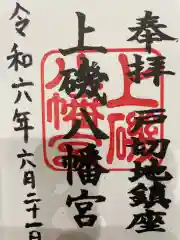 奉拝
戸切地鎮座
上磯八幡宮
上磯
八幡宮
令和六年六月二十一日